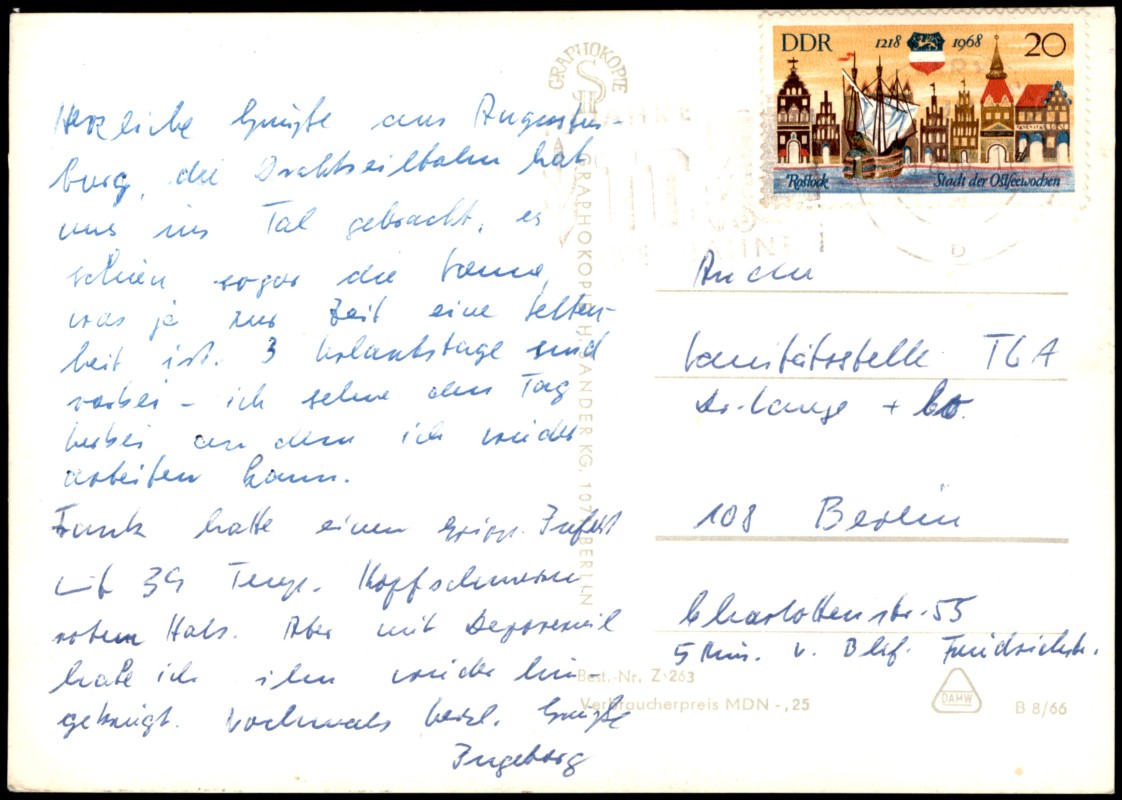 Herzliche Grüße aus Augustus-
burg, die Drahtseilbahn hat
uns ins Tal gebracht, es
schien sogar die Sonne,
was ja zur Zeit eine Selten-
heit ist. 3 Urlaubstage sind
vorbei – ich sehne den Tag
herbei an dem ich wieder
arbeiten kann.
Frank hatte einen gripp. Infekt
mit 39 Temp. Kopfschmerzen
roten Hals. Aber mit
habe ich ihn wieder hin-
gekriegt. Nochmals herzl. Grüße
Ingeborg
GRAPHOKOPIE
GRAPHOKOPIE H. SANDER KG, 107 BERLIN
DDR 1218 1968 20
Rostock Stadt der Ostseewochen
An den
Sanitätsstelle TGA
Dr. Lange + Co.
108 Berlin
Charlottenstr. 55
5 Min. v. Bhf. Friedrichstr.
Best.-Nr. Z 263
Verbraucherpreis MDN -,25
DAHW
B 8/66